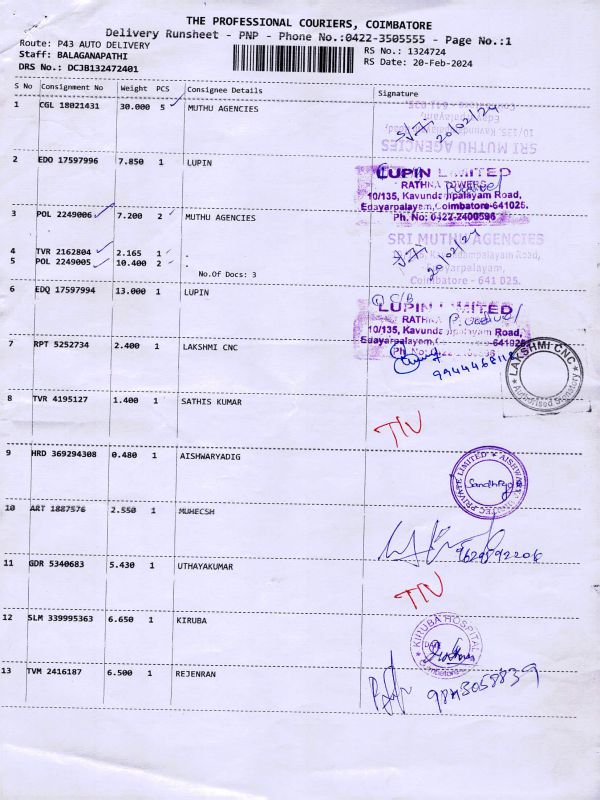 THE PROFESSIONAL COURIERS, COIMBATORE
Delivery Runsheet - PNP - Phone No.:0422-3505555 - Page No.:1
Route: P43 AUTO DELIVERY
RS No.: 1324724
Staff: BALAGANAPATHI
RS Date: 20-Feb-2024
DRS No.: DCJB132472401
S No Consignment No Weight PCS Consignee Details Signature
1 CGL 18021431 30.000 5 MUTHU AGENCIES
20/02/24
SRI MUTHU AGENCIES
2 EDO 17597996 7.850 1 LUPIN
LUPIN LIMITED
RATHNA TOWERS
10/135, Kavundampalayam Road,
Edayarpalayam, Coimbatore-641025.
Ph. No: 0422-2400596
3 POL 2249006 7.200 2 MUTHU AGENCIES
SRI MUTHU AGENCIES
4 TVR 2162804 2.165 1 .
20/02/24
5 POL 2249005 10.400 2 .
Coimbatore - 641 025.
No.Of Docs: 3
6 EDQ 17597994 13.000 1 LUPIN
LUPIN LIMITED
10/135, Kavunda palayam Road,
Edayarpalayam,
7 RPT 5252734 2.400 1 LAKSHMI CNC
LAKSHMI CNC
Authorised Signatory
8 TVR 4195127 1.400 1 SATHIS KUMAR
9 HRD 369294308 0.480 1 AISHWARYADIG
PRIVATE LIMITED
Sandhiya
10 ART 1887576 2.550 1 MUHECSH
9629592206
11 GDR 5340683 5.430 1 UTHAYAKUMAR
12 SLM 339995363 6.650 1 KIRUBA
KIRUBA HOSPITAL
13 TVM 2416187 6.500 1 REJENRAN
9843058839